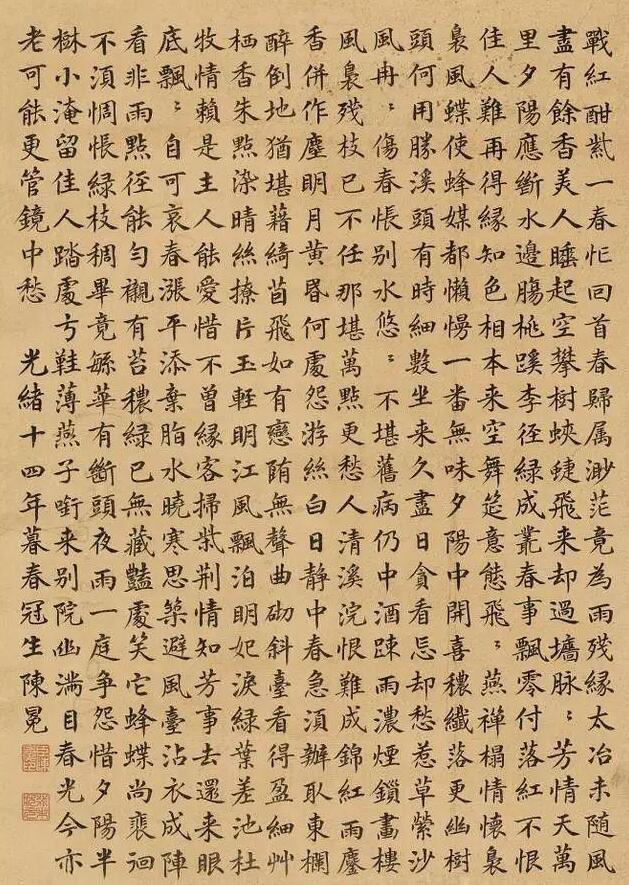 戰紅酣紫一春忙回首春歸属渺茫竟為雨殘緣太冶未隨風
盡有餘香美人睡起空攀樹蛺蜨飛來却過墻脉〻芳情天萬
里夕陽應斷水邊膓桃蹊李徑綠成叢春事飄零付落紅不恨
佳人難再得緣知色相本来空舞筵意態飛〻燕禅榻情懷裊
裊風蝶使蜂媒都懶慢一番無味夕陽中開喜穠纖落更幽樹
頭何用勝溪頭有時細數坐来久盡日貪看忘却愁惹草縈沙
風冉〻傷春悵別水悠〻不堪舊病仍中酒踈雨濃煙鎖畫樓
風裊殘枝已不任那堪萬點更愁人清溪浣恨難成錦紅雨鏖
香併作塵明月黃昏何處怨游絲白日靜中春急須辦取東欄
醉倒地猶堪藉綺茵飛如有戀陏無聲曲砌斜臺看得盈細艸
栖香朱點染晴絲撩片玉輕明江風飄泊明妃淚綠葉差池杜
牧情賴是主人能愛惜不曾緣客掃柴荆情知芳事去還来眼
底飄〻自可哀春漲平添棄脂水曉寒思築避風臺沾衣成陣
看非雨點徑能勻襯有苔穠綠已無藏豔處笑它蜂蝶尚裴徊
不湏惆悵綠枝稠畢竟繁華有斷頭夜雨一庭爭怨惜夕陽半
樹小淹留佳人踏處弓鞋薄燕子啣来別院幽滿目春光今亦
老可能更管鏡中愁 光緒十四年暮春冠生陳冕